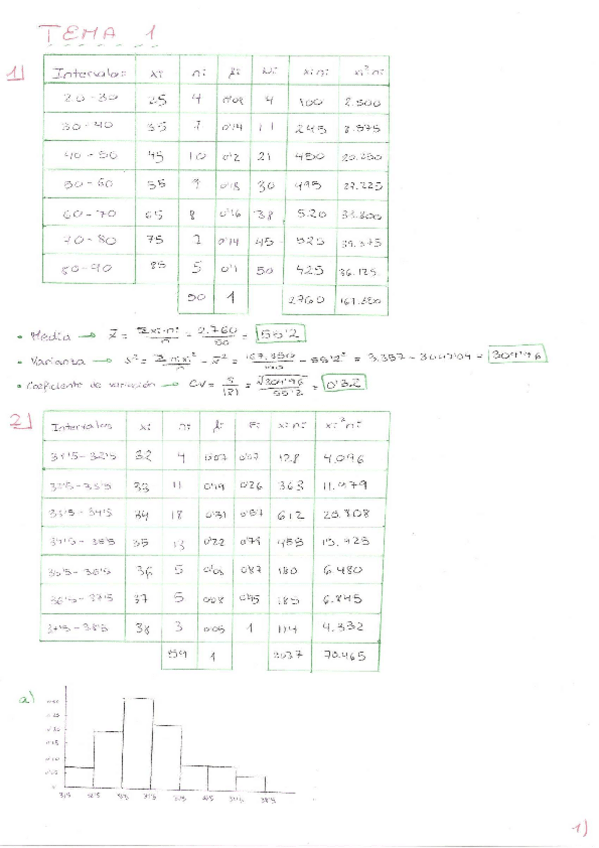 TEMA 1
1)
Intervalos xi ni fi Ni xi·ni xi²ni
20-30 25 4 0'08 4 100 2.500
30-40 35 7 0'14 11 245 8.575
40-50 45 10 0'2 21 450 20.250
50-60 55 9 0'18 30 495 27.225
60-70 65 8 0'16 38 520 33.800
70-80 75 7 0'14 45 525 39.375
80-90 85 5 0'1 50 425 36.125
50 1 2760
• Media → x̄ = Σxi·ni/n = 2.760/50 = 55'2
• Varianza → s² = Σni·xi²/n - x̄² = - 55'2² = 3.357 - 3047'04 =
• Coeficiente de variación → CV = s/|x̄| = /55'2 = 0'32
2)
Intervalos xi ni fi Fi xi·ni xi²ni
31'5-32'5 32 4 0'07 0'07 128 4.096
32'5-33'5 33 11 0'19 0'26 363 11.979
33'5-34'5 34 18 0'31 0'57 612 20.808
34'5-35'5 35 13 0'22 0'79 455 15.925
35'5-36'5 36 5 0'87 180 6.480
36'5-37'5 37 5 0'08 0'95 185 6.845
37'5-38'5 38 3 0'05 1 114 4.332
59 1 2037 70.465
a)
1)